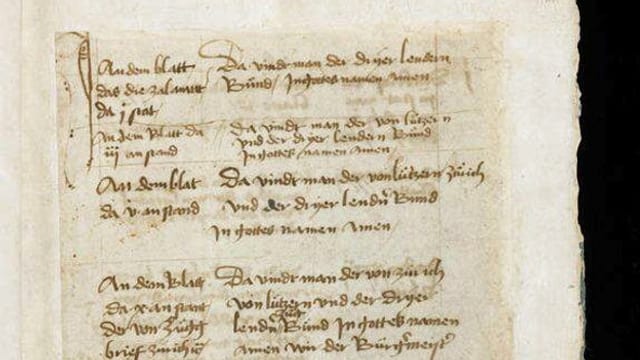 An dem blatt Da vindt man der dryer lendern
das die zal anvat Bünd / In gottes namen Amen
da j stat
An dem Blatt da Da vindt man der von lützern
iij an stand vnd der dryer lendern Bünd
In gottes namen amen
An dem blat Da vindt man der von lützern zürich
da v an stand vnd der dryer lendn Bünd
In gottes namen Amen
An dem Blatt Da vindt man der von zürich
da x an stat von lützern vnd der dryer
der von zugg lendn zug Bünd In gottes namen
brief amen wir der Burgermeist